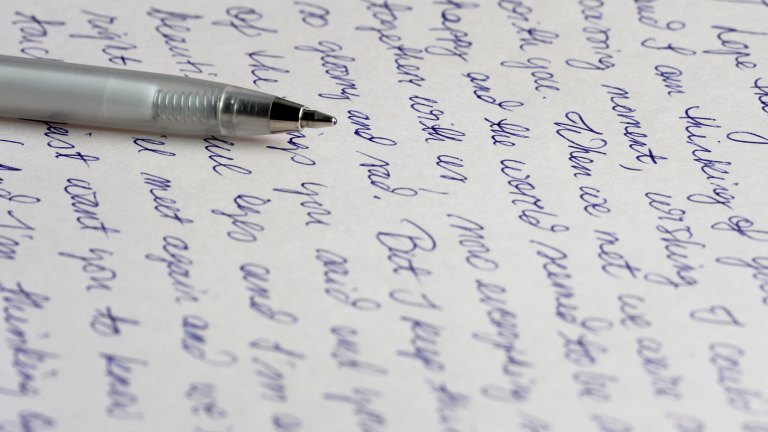 I hope
and I am thinking of you
passing moment, wishing I could
with you. When we met we were
happy and the world seemed to be
together with us, now everything
so gloomy and sad. But I keep
of the lips you said and you
blue eyes and I'm
right meet again and we
just want you to know
And I'm thinking